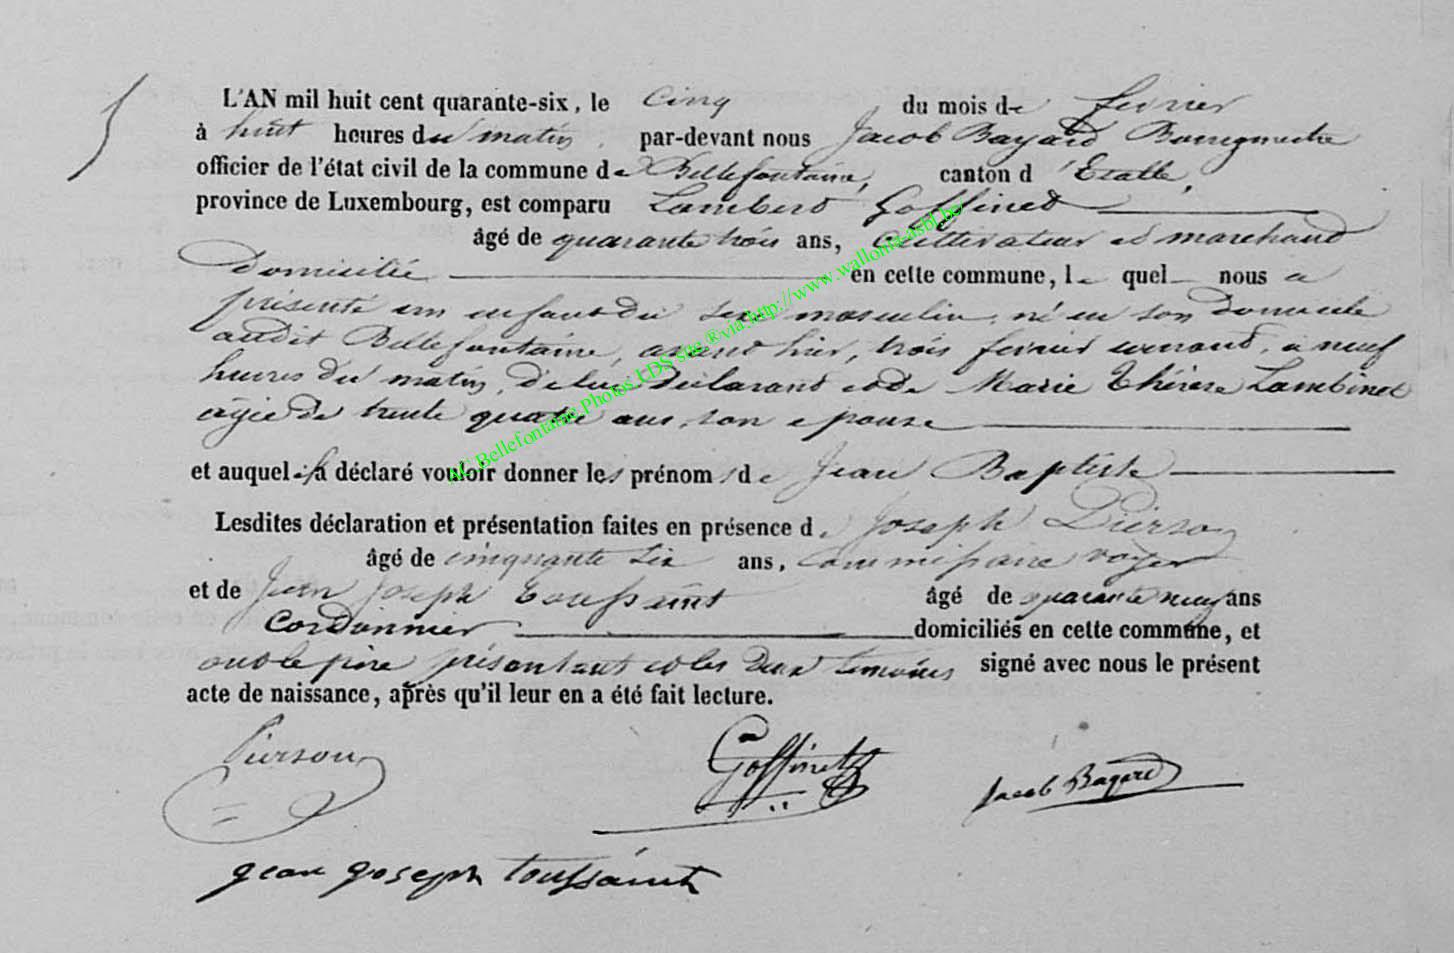 5
L'AN mil huit cent quarante-six, le Cinq du mois de fevrier
à huit heures du matin par-devant nous Jacob Bayard Bourgmestre
officier de l'état civil de la commune de Bellefontaine, canton d'Etalle,
province de Luxembourg, est comparu Lambert Goffinet
âgé de quarante trois ans, cultivateur et marchand
domicilié en cette commune, le quel nous a
présenté un enfant du sexe masculin, né en son domicile
audit Bellefontaine, avant hier, trois fevrier courant, à neuf
heures du matin, de lui déclarant et de Marie Thérèse Lambinet
agée de trente quatre ans, son epouse
et auquel il a déclaré vouloir donner les prénoms de Jean Baptiste
Lesdites déclaration et présentation faites en présence de Joseph Pierson
âgé de cinquante six ans, commissaire voyer
et de Jean Joseph Toussaint âgé de quarante neuf ans
Cordonnier domiciliés en cette commune, et
ont le père présentant et les deux temoins signé avec nous le présent
acte de naissance, après qu'il leur en a été fait lecture.
Pierson Goffinet Jacob Bayard
jean joseph toussaint
AC Bellefontaine Photos LDS site ® via http://www.wallonia-asbl.be/